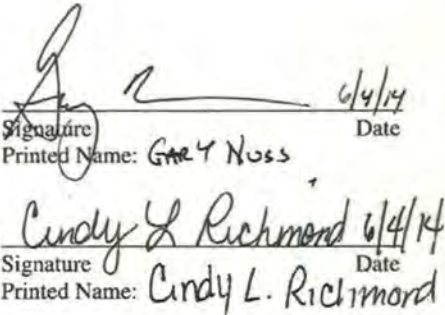 6/4/14
Signature Date
Printed Name: GARY NUSS
Cindy L Richmond 6/4/14
Signature Date
Printed Name: Cindy L. Richmond